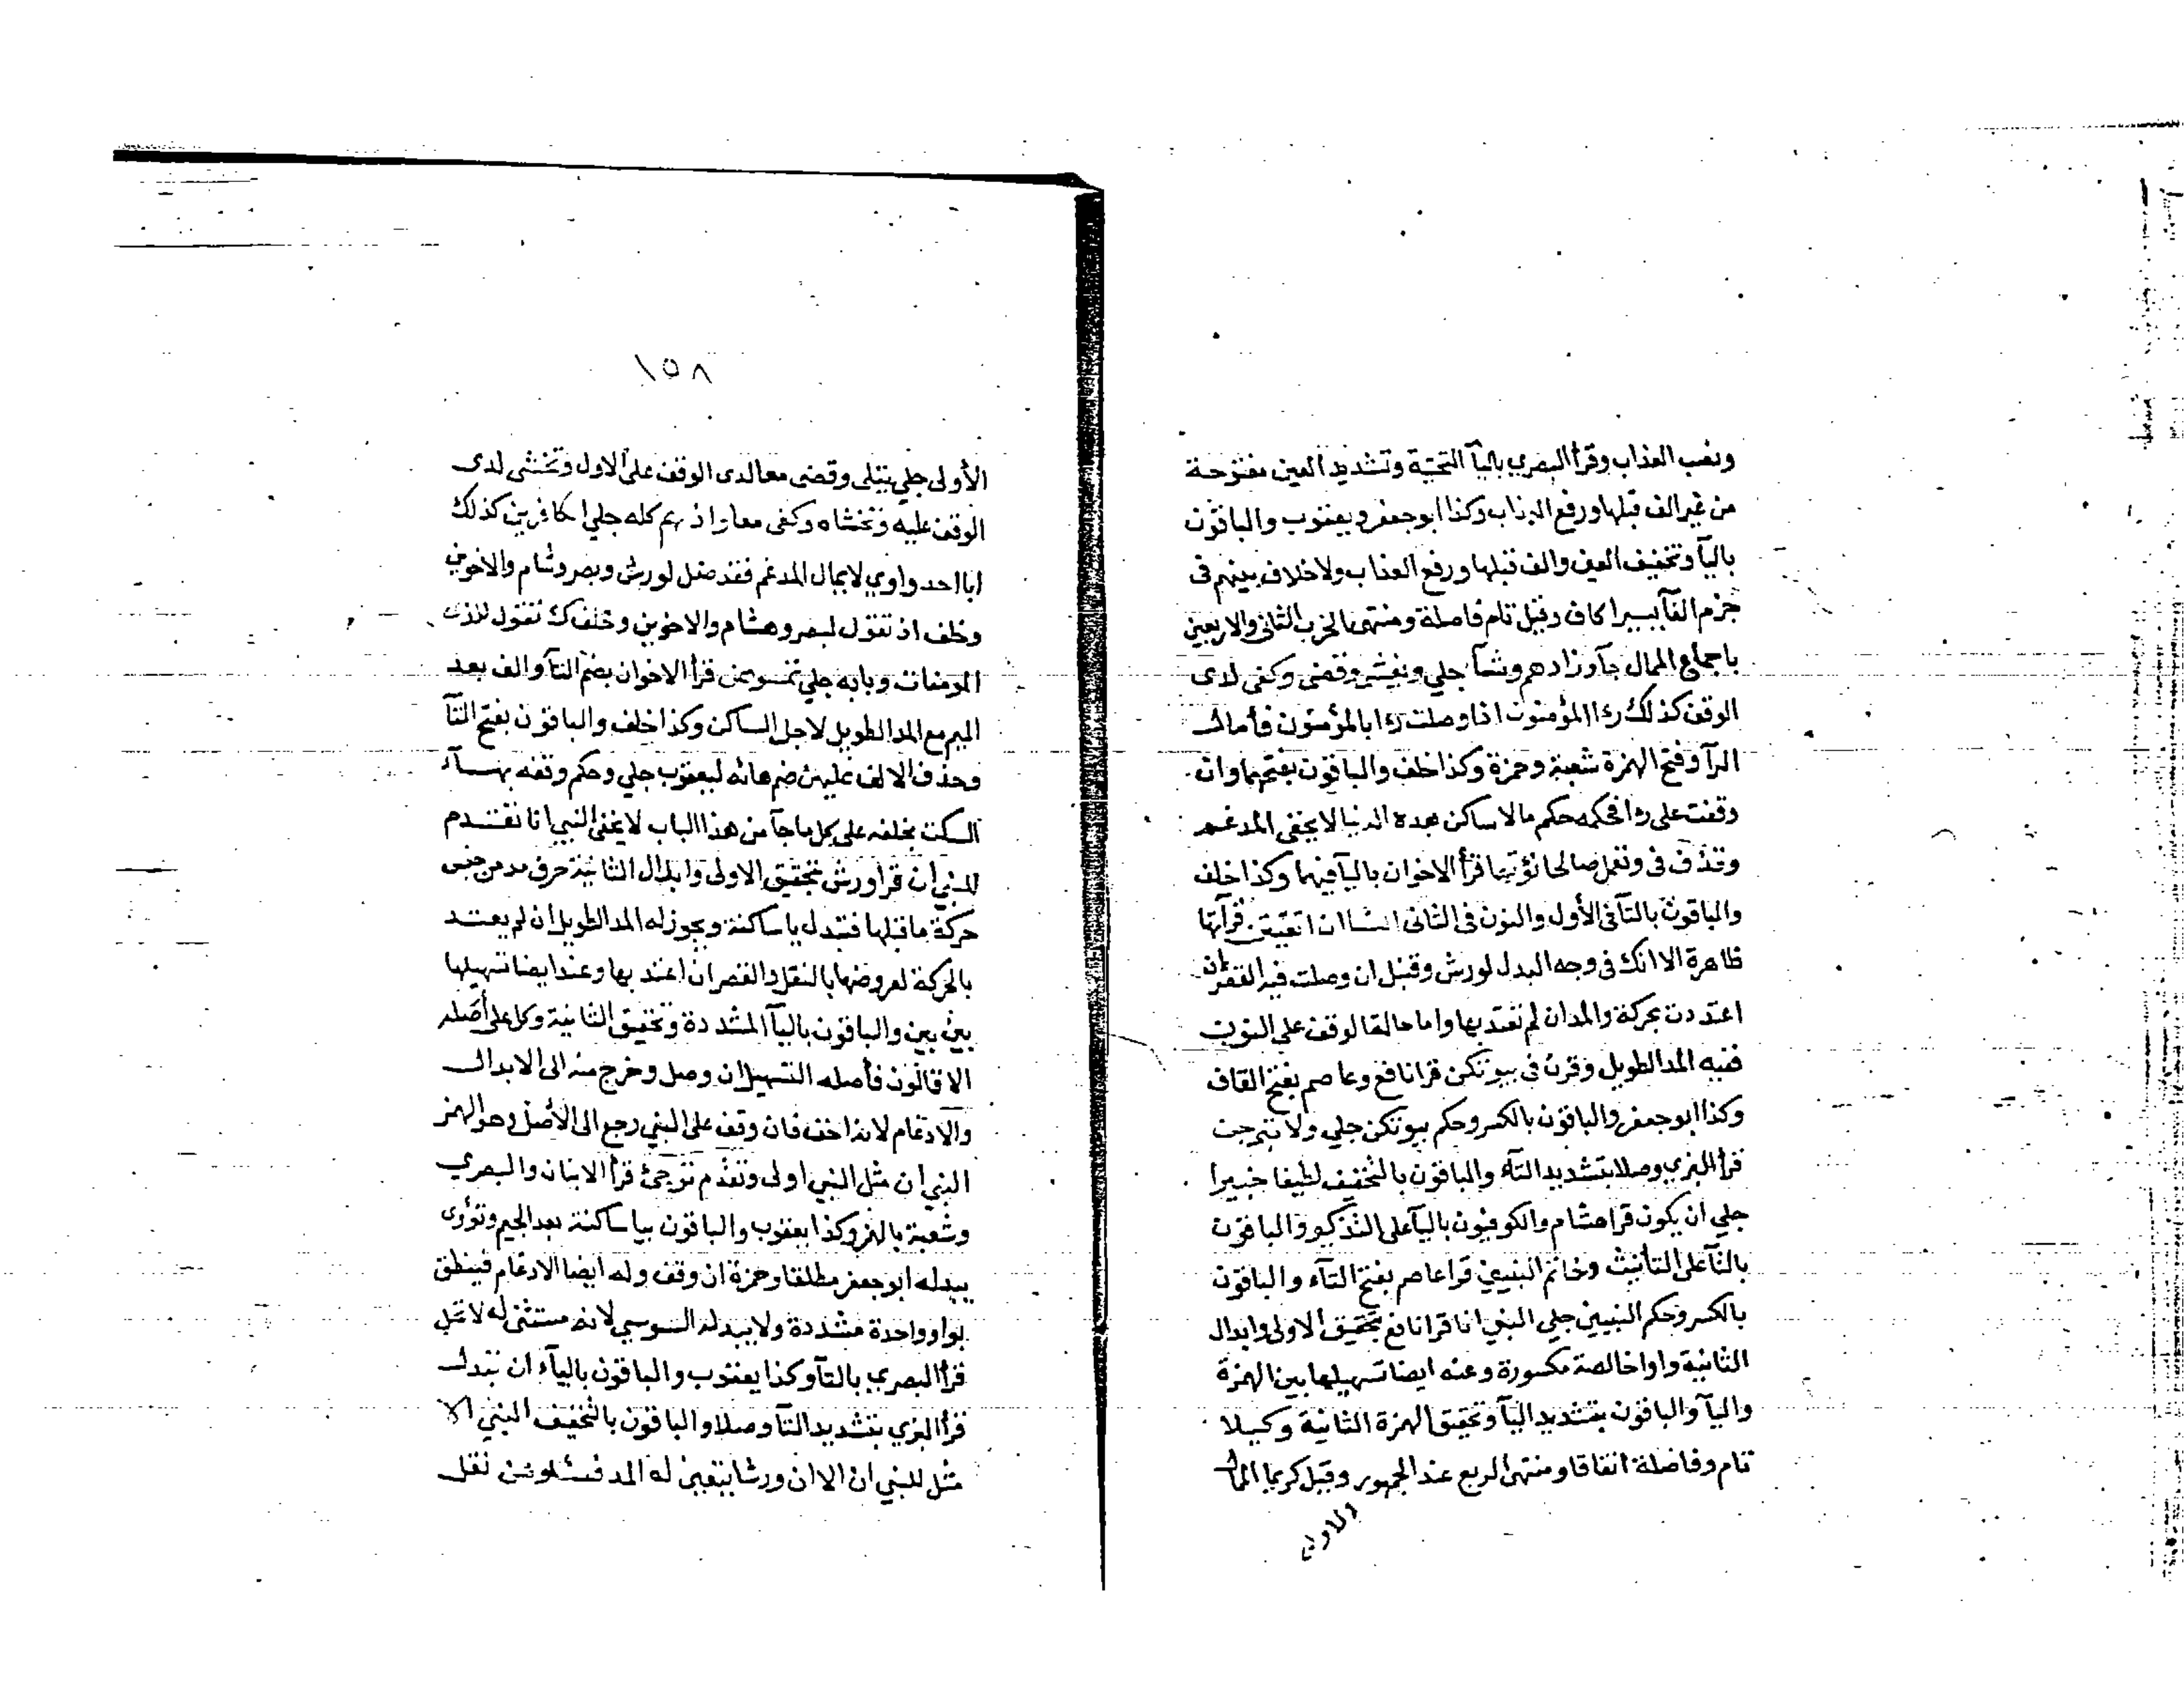 ونصب العذاب وقرأ البصري باليآ التحتية وتشديد العين مفتوحة
من غير الف قبلها ورفع العذاب وكذا ابوجعفر ويعقوب والباقون
باليآ وتخفيف العين والف قبلها ورفع العذاب ولا خلاف بينهم فى
جزم الفآ يسيرا كاف وقيل تام فاصلة ومنتهى الحزب الثانى والاربعين
باجماع الممال جآ وزادهم وشآ جلي ويغشى وقضى وكفى لدى
الوقف كذلك رءا المؤمنون اذا وصلت رءا بالمؤمنون فأمال
الرآ وفتح الهمزة شعبة وحمزة وكذا خلف والباقون بفتحهما وان
وقفت على رءا فحكمه حكم مالا ساكن بعده الدنيا لا يخفى المدغم
وقذف فى وتعمل صالحا نؤتها قرأ الاخوان باليآ فيهما وكذا خلف
والباقون بالتآ فى الأول والنون فى الثانى النسا ان اتقيتن قرآتها
ظاهرة الا انك فى وجه البدل لورش وقنبل ان وصلت فيه القصر ان
اعتددت بحركة والمد ان لم تعتد بها واما حالة الوقف على النون
ففيه المد الطويل وقرن فى بيوتكن قرا نافع وعاصم بفتح القاف
وكذا ابوجعفر والباقون بالكسر وحكم بيوتكن جلي ولا تبرجن
قرأ البزي وصلا بتشديد التآء والباقون بالتخفيف لطيفا خبيرا
جلي ان يكون قرا هشام والكوفيون باليآ على التذكير والباقون
بالتآ على التأنيث وخاتم النبيين قرا عاصم بفتح التآء والباقون
بالكسر وحكم النبيين جلي النبي انا قرا نافع بتحقيق الاولى وابدال
الثانية واوا خالصة مكسورة وعنه ايضا تسهيلها بين الهمزة
واليآ والباقون بتشديد اليآ وتحقيق الهمزة الثانية وكيلا
تام وفاصلة اتفاقا ومنتهى الربع عند الجمهور وقيل كريما الممال
الاولى
١٥٨
الأولى جلي يتلى وقضى معا لدى الوقف على الاول وتخشى لدى
الوقف عليه وتخشاه وكفى معا واذيهم كله جلي الكافرين كذلك
ابا احد واوي لا يمال المدغم فقد ضل لورش وبصر وشام والاخوين
وخلف اذ تقول لبصر وهشام والاخوين وخلف ك تقول للذى
المومنات وبابه جلي تمسوهن قرأ الاخوان بضم التآ والف بعد
الميم مع المد الطويل لاجل الساكن وكذا خلف والباقون بفتح التآ
وحذف الالف عليهن ضم هائه ليعقوب جلي وحكم وقفه بهآء
السكت بخلفه على كل ما جآ من هذا الباب لا يخفى النبي انا تقدم
للنبي ان قرا ورش بتحقيق الاولى وابدال الثانية حرف مد من جنس
حركة ما قبلها فتبدل يا ساكنة ويجوز له المد الطويل ان لم يعتد
بالحركة لعروضها بالنقل والقصر ان اعتد بها وعند ايضا تسهيلها
بين بين والباقون باليآ المشددة وتحقيق الثانية وكل على أصله
الا قالون فأصله التسهيل ان وصل وخرج منه الى الابدال
والادغام لانه اخف فان وقف على النبي رجع الى الأصل وهو الهمز
النبي ان مثل النبي اولى وتقدم ترجئ قرأ الابنان والبصري
وشعبة بالهمز وكذا يعقوب والباقون بيا ساكنة بعد الجيم وتؤوى
يبدله ابوجعفر مطلقا وحمزة ان وقف وله ايضا الادغام فينطق
بواو واحدة مشددة ولا يبدله السوسي لانه مستثنى له لا تحل
قرأ البصري بالتآ وكذا يعقوب والباقون باليآء ان تبدل
قرأ البزي بتشديد التآ وصلا والباقون بالتخفيف النبي الا
مثل للنبي ان الا ان ورشا يتعين له المد فسئلوهن نقل